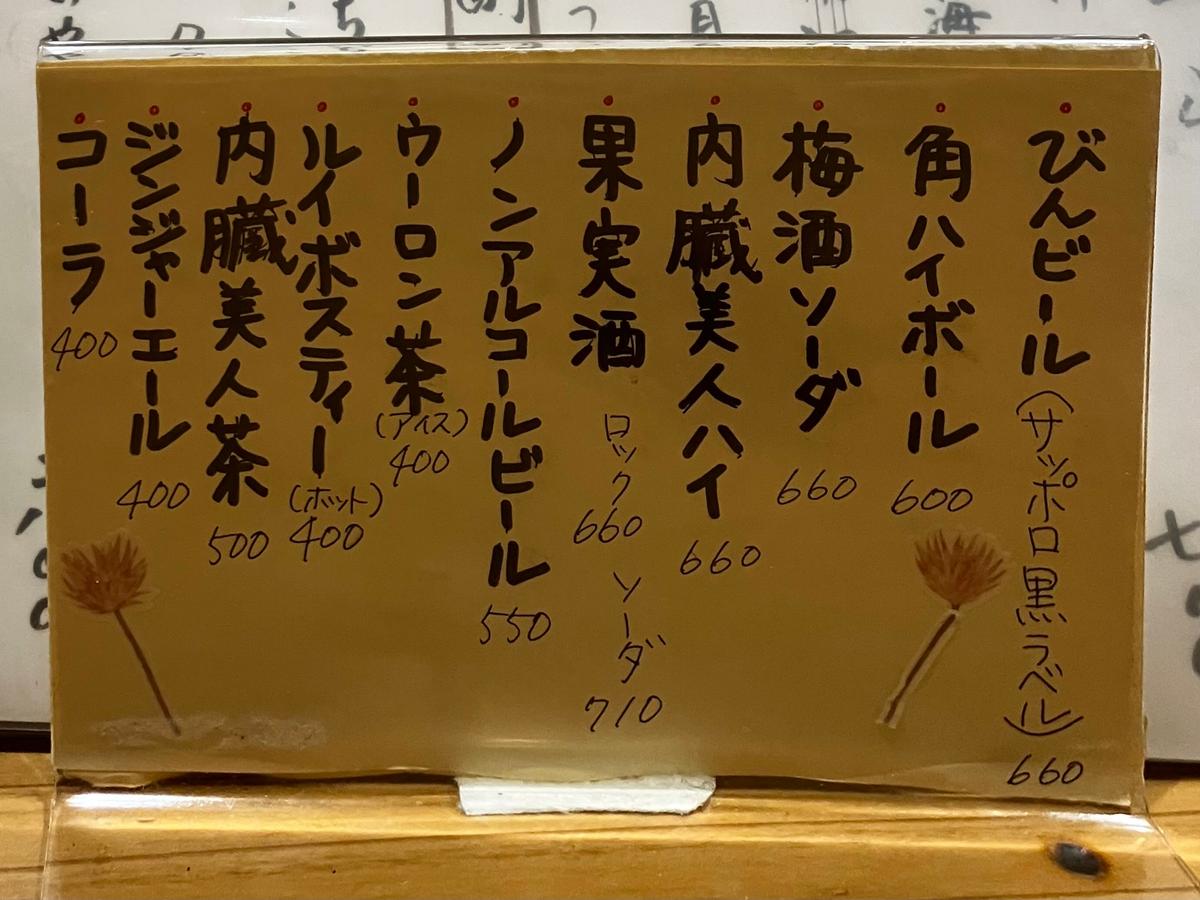 びんビール(サッポロ黒ラベル) 660
角ハイボール 600
梅酒ソーダ 660
内臓美人ハイ 660
果実酒 ロック 660 ソーダ 710
ノンアルコールビール 550
ウーロン茶(アイス) 400
ルイボスティー(ホット) 400
内臓美人茶 500
ジンジャーエール 400
コーラ 400